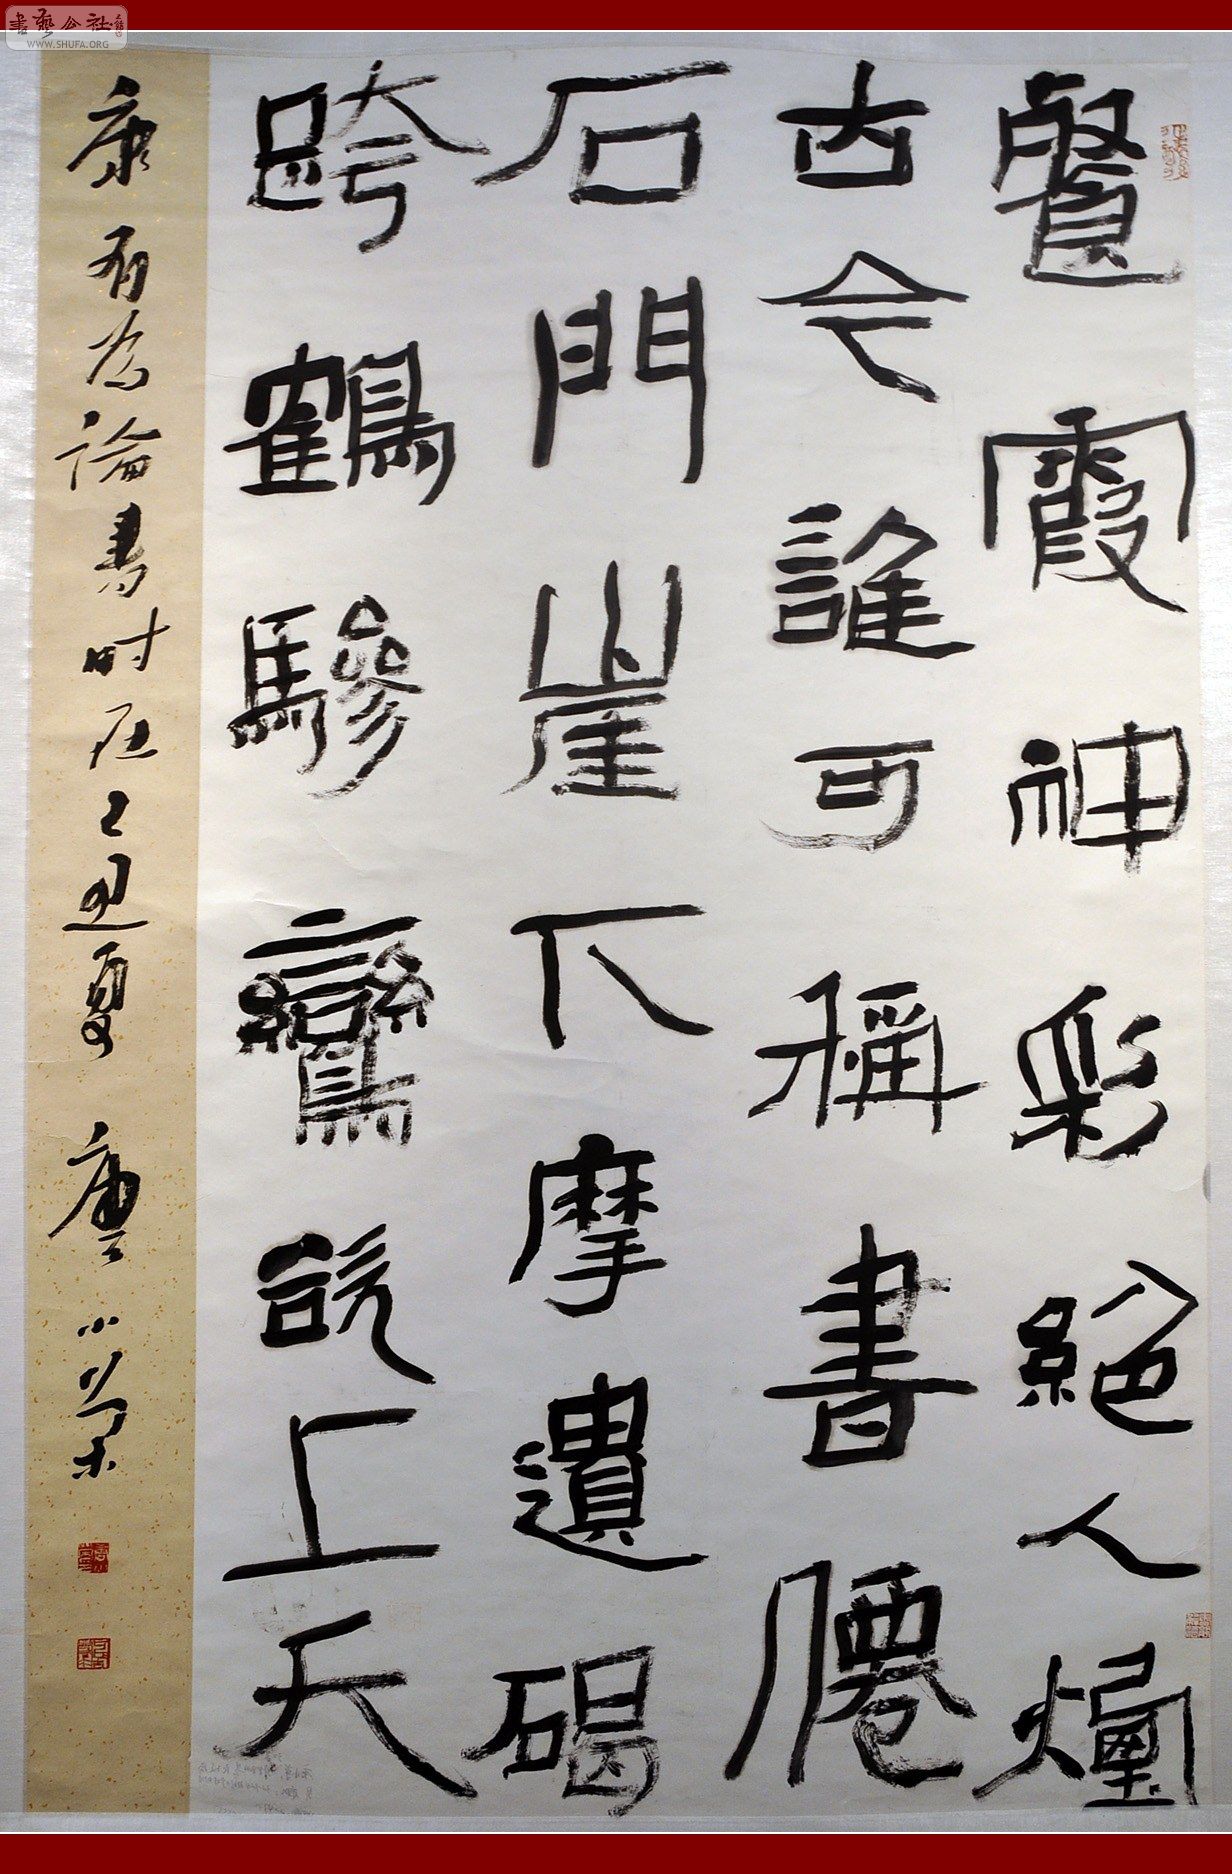 書藝公社
WWW.SHUFA.ORG
餐霞神彩絕人煙
古今誰可稱書僊
石門崖下摩遺碣
跨鶴驂鸞欲上天
康有为論書时在己丑夏 唐小